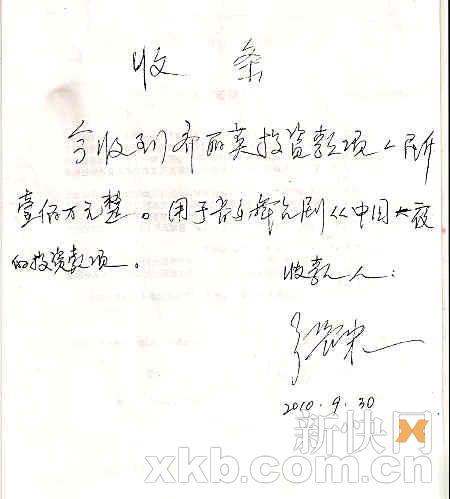 收 条
今收到齐丽英投资款项人民币
壹佰万元整。用于音乐舞台剧《中国夜
的投资款项。
收款人：
2010.9.30
新快网
xkb.com.cn